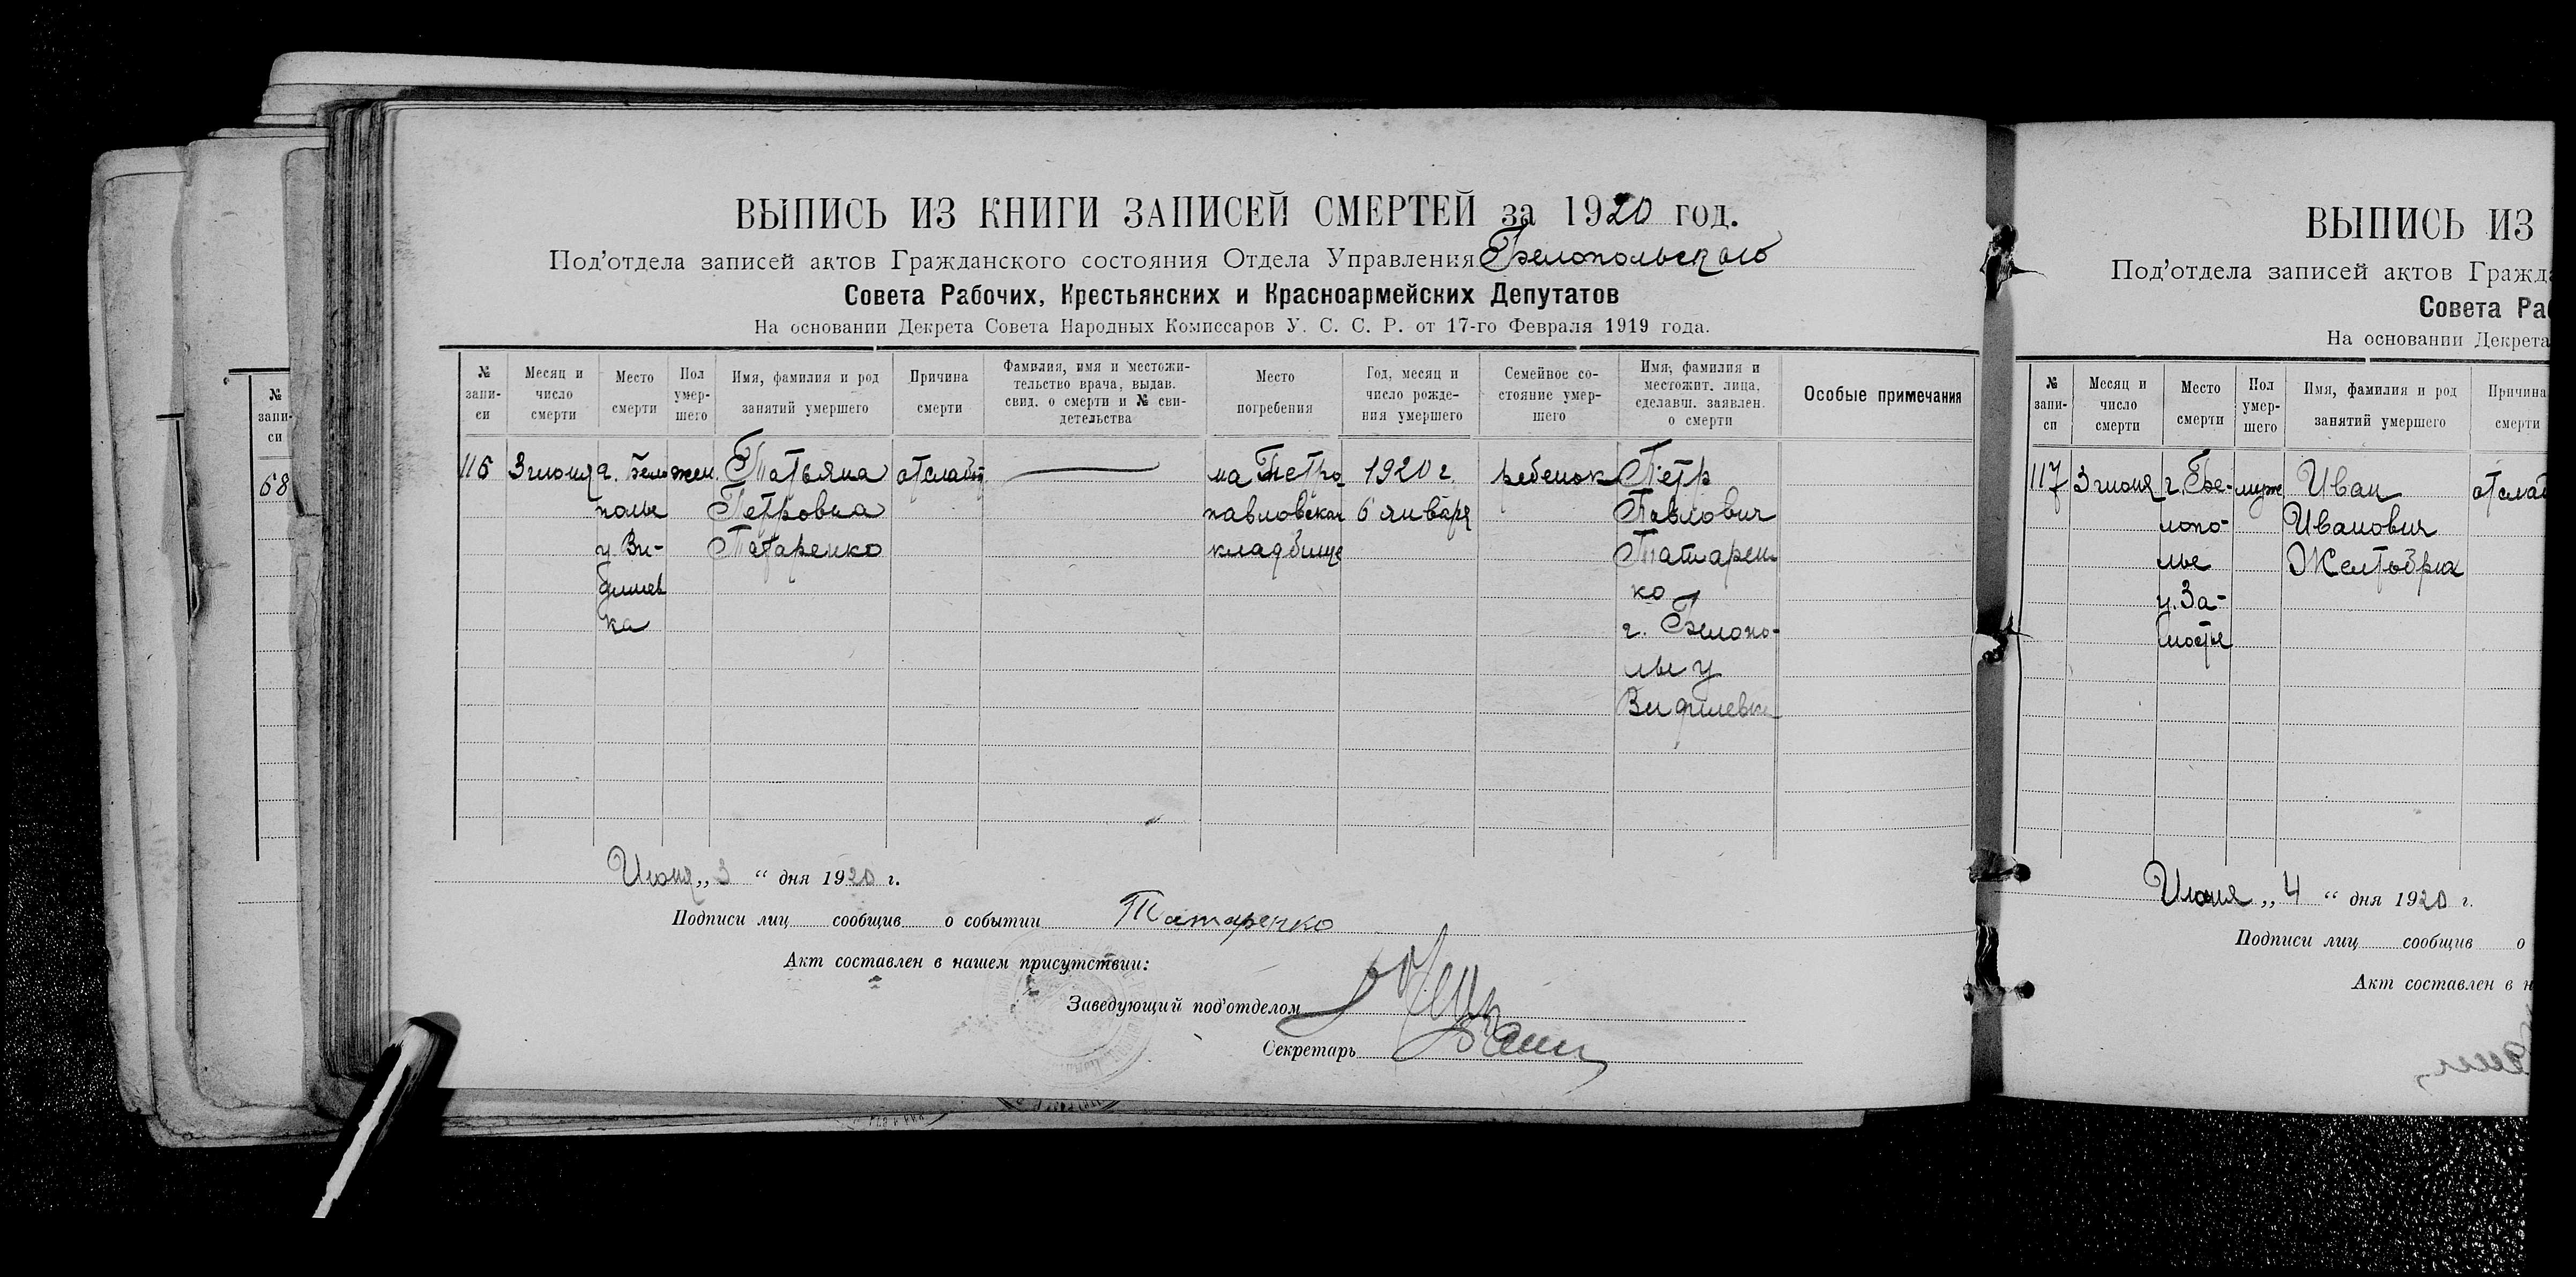 ВЫПИСЬ ИЗ КНИГИ ЗАПИСЕЙ СМЕРТЕЙ за 1920 год.
Под'отдела записей актов Гражданского состояния Отдела Управления Белопольского
Совета Рабочих, Крестьянских и Красноармейских Депутатов
На основании Декрета Совета Народных Комиссаров У. С. С. Р. от 17-го Февраля 1919 года.
№ запи-си
Месяц и число смерти
Место смерти
Пол умер-шего
Имя, фамилия и род занятий умершего
Причина смерти
Фамилия, имя и местожи-тельство врача, выдав. свид. о смерти и № сви-детельства
Место погребения
Год, месяц и число рожде-ния умершего
Семейное со-стояние умер-шего
Имя, фамилия и местожит. лица, сделавш. заявлен. о смерти
Особые примечания
116
3 июня
г. Бело
полье
у. Ви-
ка
жен.
Татьяна
Петровна
Татаренко
на Петро
павловском
кладбище
1920 г.
6 января
ребенок
Петр
Павлович
Татарен
ко
г. Белопо-
лье у
Июня „3“ дня 1920 г.
Подписи лиц сообщив о событии Татаренко
Акт составлен в нашем присутствии:
Заведующий под'отделом
Секретарь
№ запи-си
68
ВЫПИСЬ ИЗ
Под'отдела записей актов Гражд
Совета Ра
На основании Декрета
№ запи-си
Месяц и число смерти
Место смерти
Пол умер-шего
Имя, фамилия и род занятий умершего
Причина смерти
117
3 июня
г. Бе-
лопо-
лье
у. За-
мостье
муж
Иван
Иванович
Июня „4“ дня 1920 г.
Подписи лиц сообщив о
Акт составлен в н